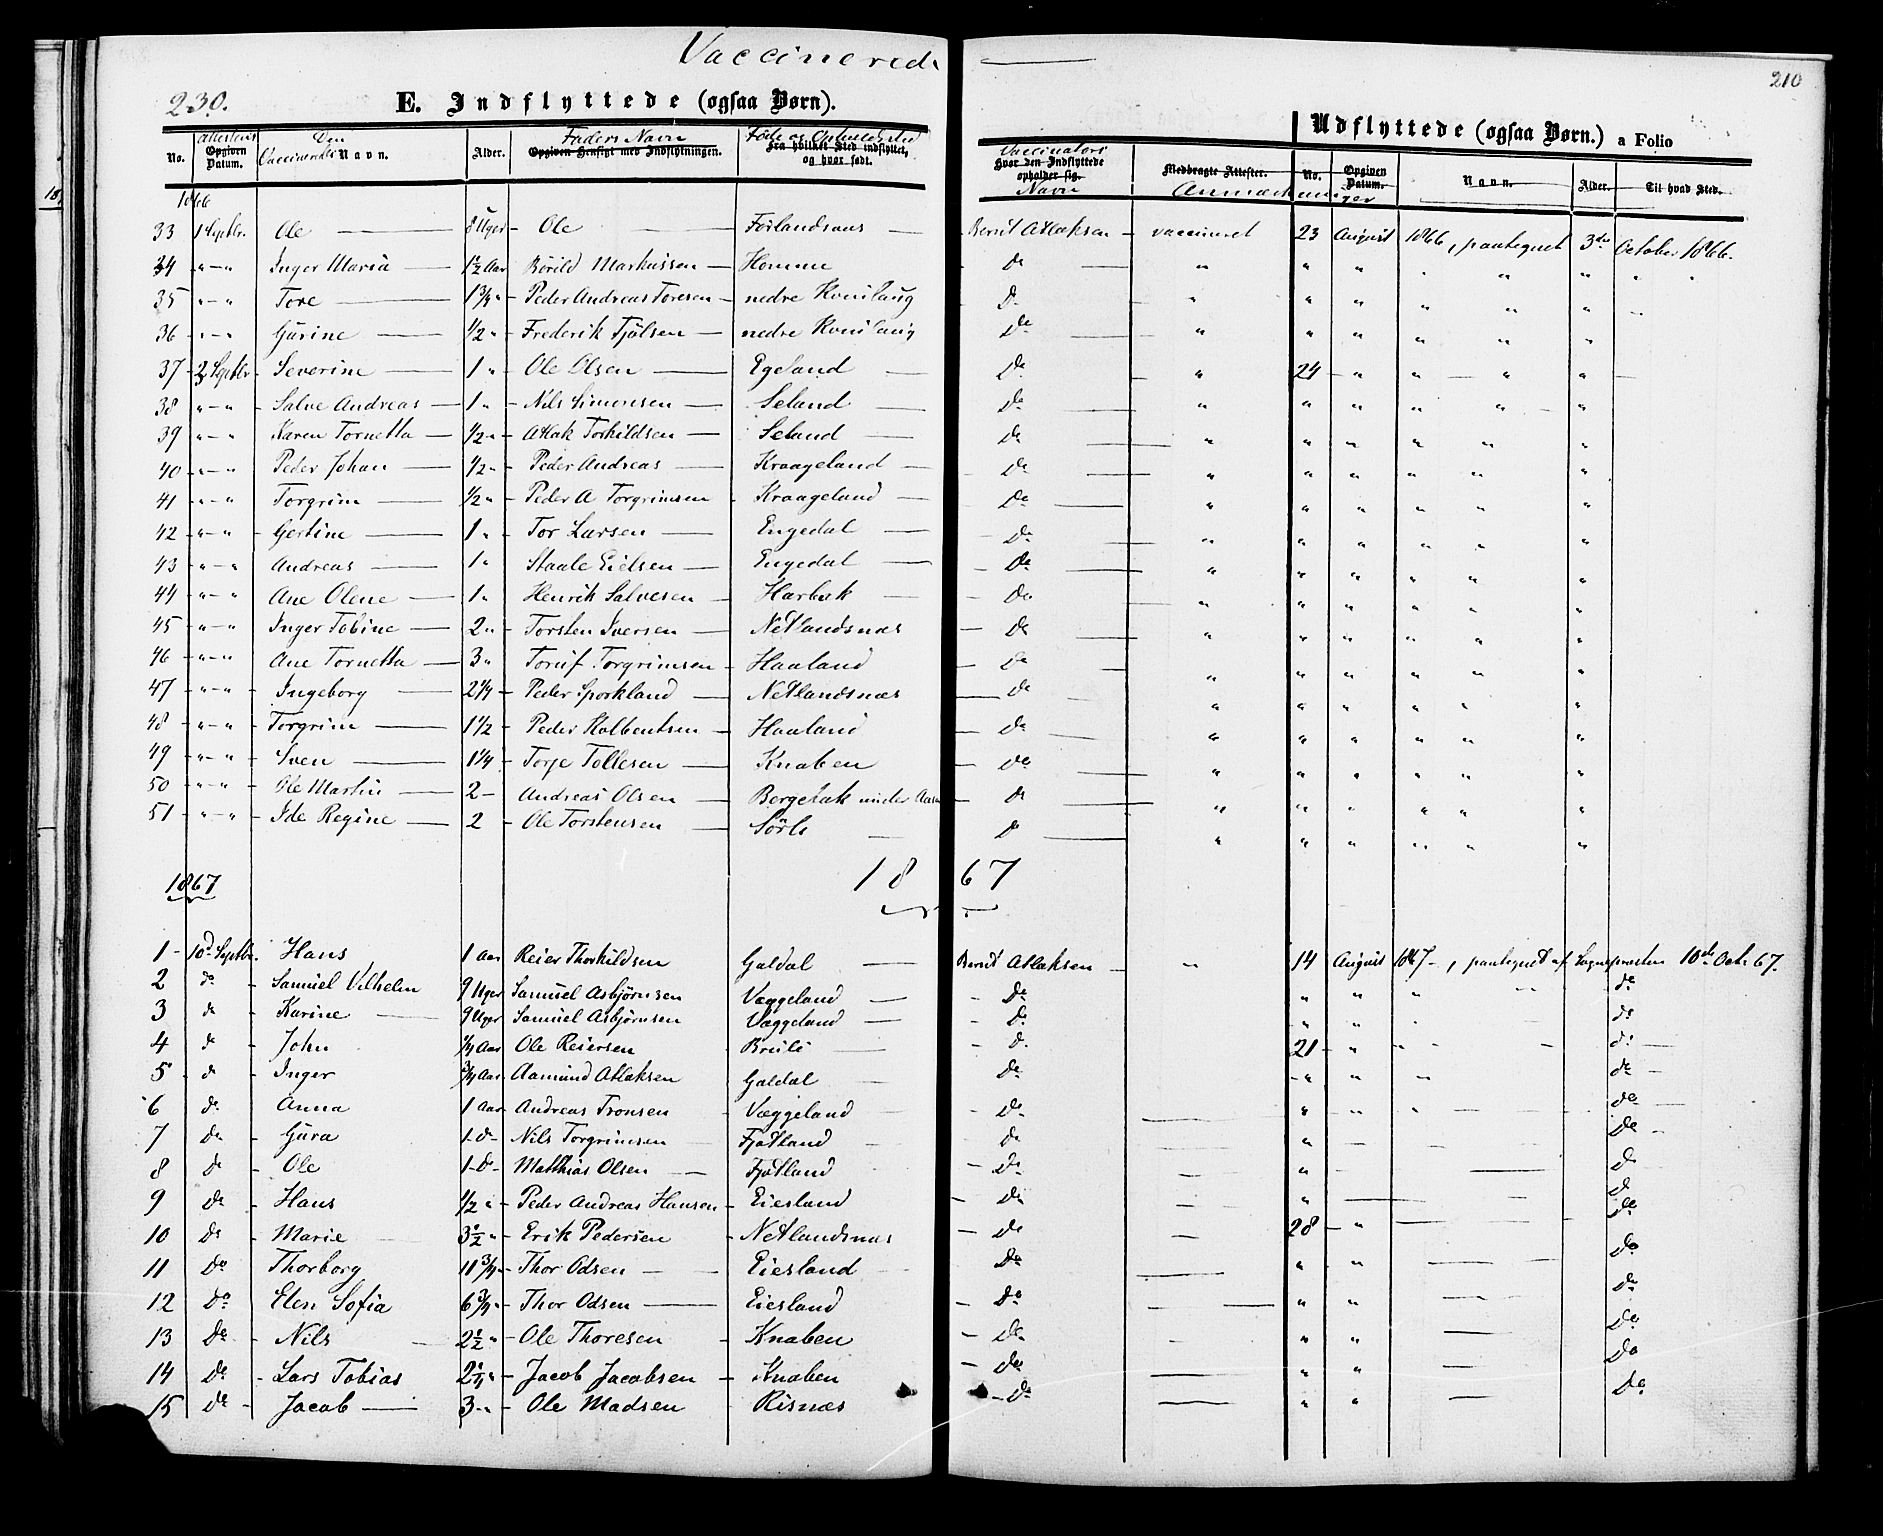 Vaccinerede
230.
210
E. Indflyttede (ogsaa Børn).
Udflyttede (ogsaa Børn.) a Folio
No. Attestens Opgiven Datum. Den Vaccineredes Navn. Alder. Faders Navn Opgiven Hensigt med Indflytningen. Føde og Opholdssted Fra hvilket Sted indflyttet, og hvor født. Vaccinators Navn Hvor den Indflyttede opholder sig. Medbragte Attester. Anmærkninger No. Opgiven Datum. Navn. Alder. Til hvad Sted.
1866
33 1 Septbr. Ole 8 Uger Ole Førlandsaas Berent Atlaksen vaccineret 23 August 1866, paategnet 3die October 1866.
34 " - " Inger Maria 1½ Aar Børild Markussen Homme do " " "
35 " - " Tore 1¾ " Peder Andreas Toresen nedre Kvinlaug Do " " "
36 " - " Gurine ½ " Frederik Tjølsen nedre Kvinlaug Do " " "
37 2 Septbr Severine 1 " Ole Olsen Egeland Do " 24 " "
38 " - " Salve Andreas 1 " Nils Simonsen Seland Do " " "
39 " - " Karen Tornetta ½ " Atlak Torkildsen Seland Do " " "
40 " - " Peder Johan ½ " Peder Andreas Kraageland Do " " "
41 " - " Torgrim ½ " Peder A Torgrimsen Kraageland Do " " "
42 " - " Gertine 1 " Tor Larsen Engedal Do " " "
43 " - " Andreas 1 " Staale Eielsen Engedal Do " " "
44 " - " Ane Olene 1 " Henrik Salvesen Harbak Do " " "
45 " - " Inger Tobine 2 " Torsten Iversen Netlandsnæs Do " " "
46 " - " Ane Tornetta 3 " Toruf Torgrimsen Haaland Do " " "
47 " - " Ingeborg 2¼ Peder Sporkland Netlandsnæs Do " " "
48 " - " Torgrim 1½ Peder Holbentsen Haaland Do " " "
49 " - " Sven 1¼ Torje Tollesen Knaben Do " " "
50 " - " Ole Martin 2 Andreas Olsen Bergesak under Aasen Do " " "
51 " - " Ide Regine 2 Ole Torstensen Sørli Do " " "
1867 1867
1 10d Septbr. Hans 1 Aar Reier Thorkildsen Galdal Berent Atlaksen " 14 August 1867, paategnet af Sognepresten 10de Octr 67.
2 do Samuel Vilhelm 9 Uger Samuel Asbjørnsen Væggeland Do " " " do
3 do Karine 9 Uger Samuel Asbjørnsen Væggeland Do " " " do
4 do John ¼ Aar Ole Reiersen Breili Do 21 " " do
5 do Inger ¾ Aar Aamund Atlaksen Galdal Do " " " do
6 do Anna 1 Aar Andreas Tronsen Væggeland Do " " " do
7 do Gura 1 do Nils Torgrimsen Fjotland Do " do
8 do Ole 1 do Matthias Olsen Fjotland Do " do
9 Do Hans ½ " Peder Andreas Hansen Eiesland Do " do
10 Do Marie 3½ " Erik Pedersen Netlandsnæs Do 28 " do
11 Do Thorborg 11¾ Thor Odsen Eiesland Do " " Do
12 Do Elen Sofia 6¾ Thor Odsen Eiesland Do " " Do
13 Do Nils 2½ " Ole Thoresen Knaben Do " " Do
14 Do Lars Tobias 2¼ " Jacob Jacobsen Knaben Do " " Do
15 Do Jacob 3 " Ole Madsen Risnæs Do " " Do